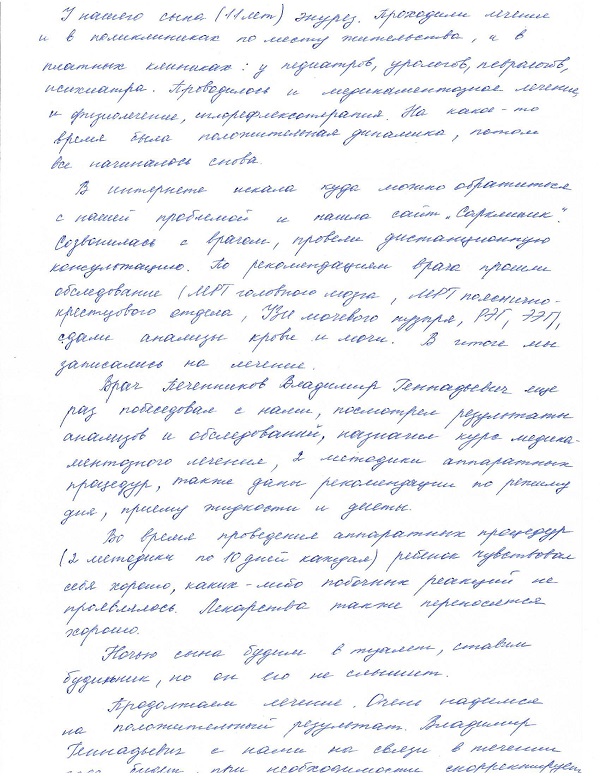 У нашего сына (11 лет) энурез. Проходили лечение
и в поликлиниках по месту жительства, и в
платных клиниках: у педиатров, урологов, неврологов,
психиатра. Проводилось и медикаментозное лечение,
и физиолечение, иглорефлексотерапия. На какое-то
время была положительная динамика, потом
все начиналось снова.
В интернете искала куда можно обратиться
с нашей проблемой и нашла сайт „Сарклиник".
Созвонилась с врачом, провели дистанционную
консультацию. По рекомендациям врача прошли
обследование (МРТ головного мозга, МРТ пояснично-
крестцового отдела, УЗИ мочевого пузыря, РЭГ, ЭЭГ),
сдали анализы крови и мочи. В итоге мы
записались на лечение.
Врач Печенников Владимир Геннадьевич еще
раз побеседовал с нами, посмотрел результаты
анализов и обследований, назначил курс медика-
ментозного лечения, 2 методики аппаратных
процедур, также даны рекомендации по режиму
дня, приему жидкости и диеты.
Во время проведения аппаратных процедур
(2 методики по 10 дней каждая) ребенок чувствовал
себя хорошо, каких-либо побочных реакций не
проявлялось. Лекарства также переносятся
хорошо.
Ночью сына будим в туалет, ставим
будильник, но он его не слышит.
Продолжаем лечение. Очень надеемся
на положительный результат. Владимир
Геннадьевич с нами на связи в течении
при необходимости скорректирует